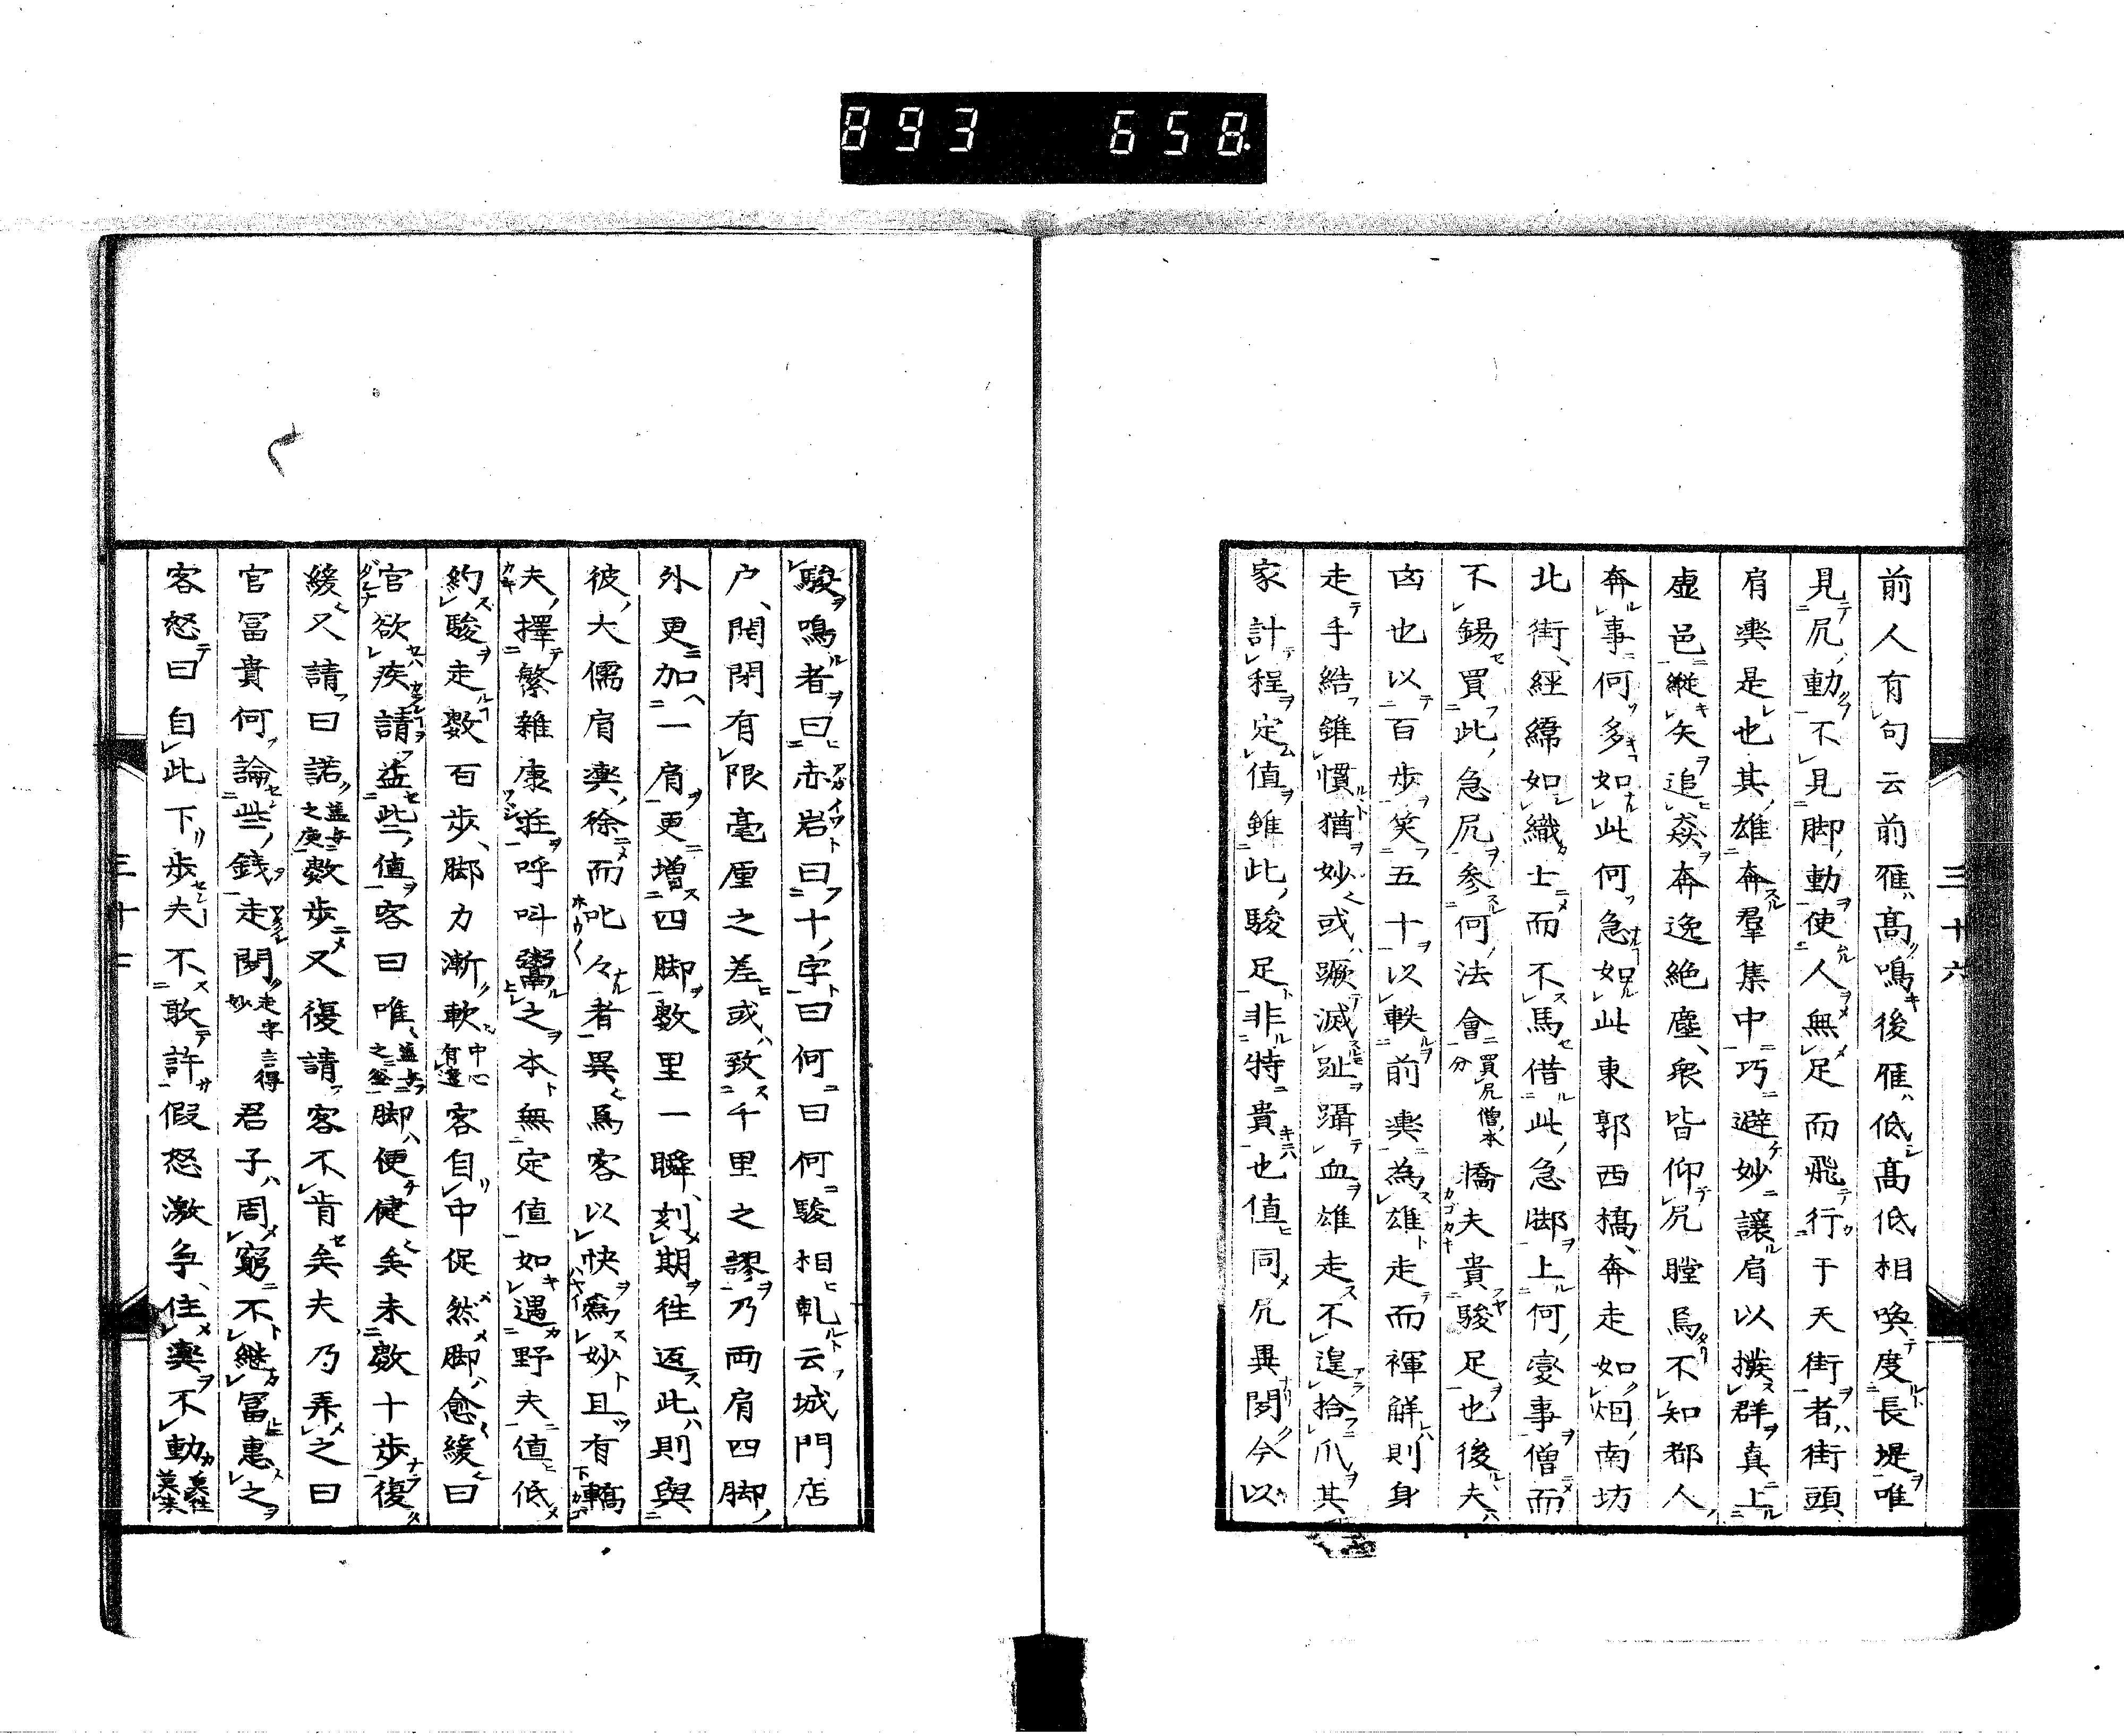 893 658
三十六
前人有句云前雁高鳴後雁低高低相喚度長堤唯
見尻動不見脚動使人無足而飛行于天街者街頭
肩輿是也其雄奔羣集中巧避妙讓肩以撲群真上
虛邑縱矢追猋奔逸絶塵衆皆仰尻瞠焉不知都人
奔事何多如此何急如此東郭西橋奔走如烟南坊
北街經緯如織士而不馬借此急脚上何變事僧而
不錫買此急尻参何法會買尻僧本分橋夫貴駿足也後夫
凾也以百歩笑五十以軼前輿為雄走而褌解則身
走手結錐慣猶妙或蹶滅趾躡血雄走不遑拾爪其
家計程定値錐此駿足非特貴也値同尻異閔今以
駿鳴者曰赤岩曰十字曰何曰何駿相軋云城門店
户開閉有限毫厘之差或致千里之謬乃両肩四脚
外更加一肩更増四脚數里一瞬刻期徃返此則與
彼大儒肩輿徐而叱々者異為客以快為妙且有轎
夫擇繁雜康莊呼叫鬻之本無定値如遇野夫値低
約駿走數百歩脚力漸軟中心有違客自中促然脚愈緩曰
官欲疾請益此値客曰唯益与之益脚便健矣未數十歩復
緩又請曰諾益与之更數歩又復請客不肯矣夫乃弄之曰
官冨貴何論些銭走閔走字言得妙君子周窮不継冨惠之
客怒曰自此下歩夫不敢許假怒激争住輿不動